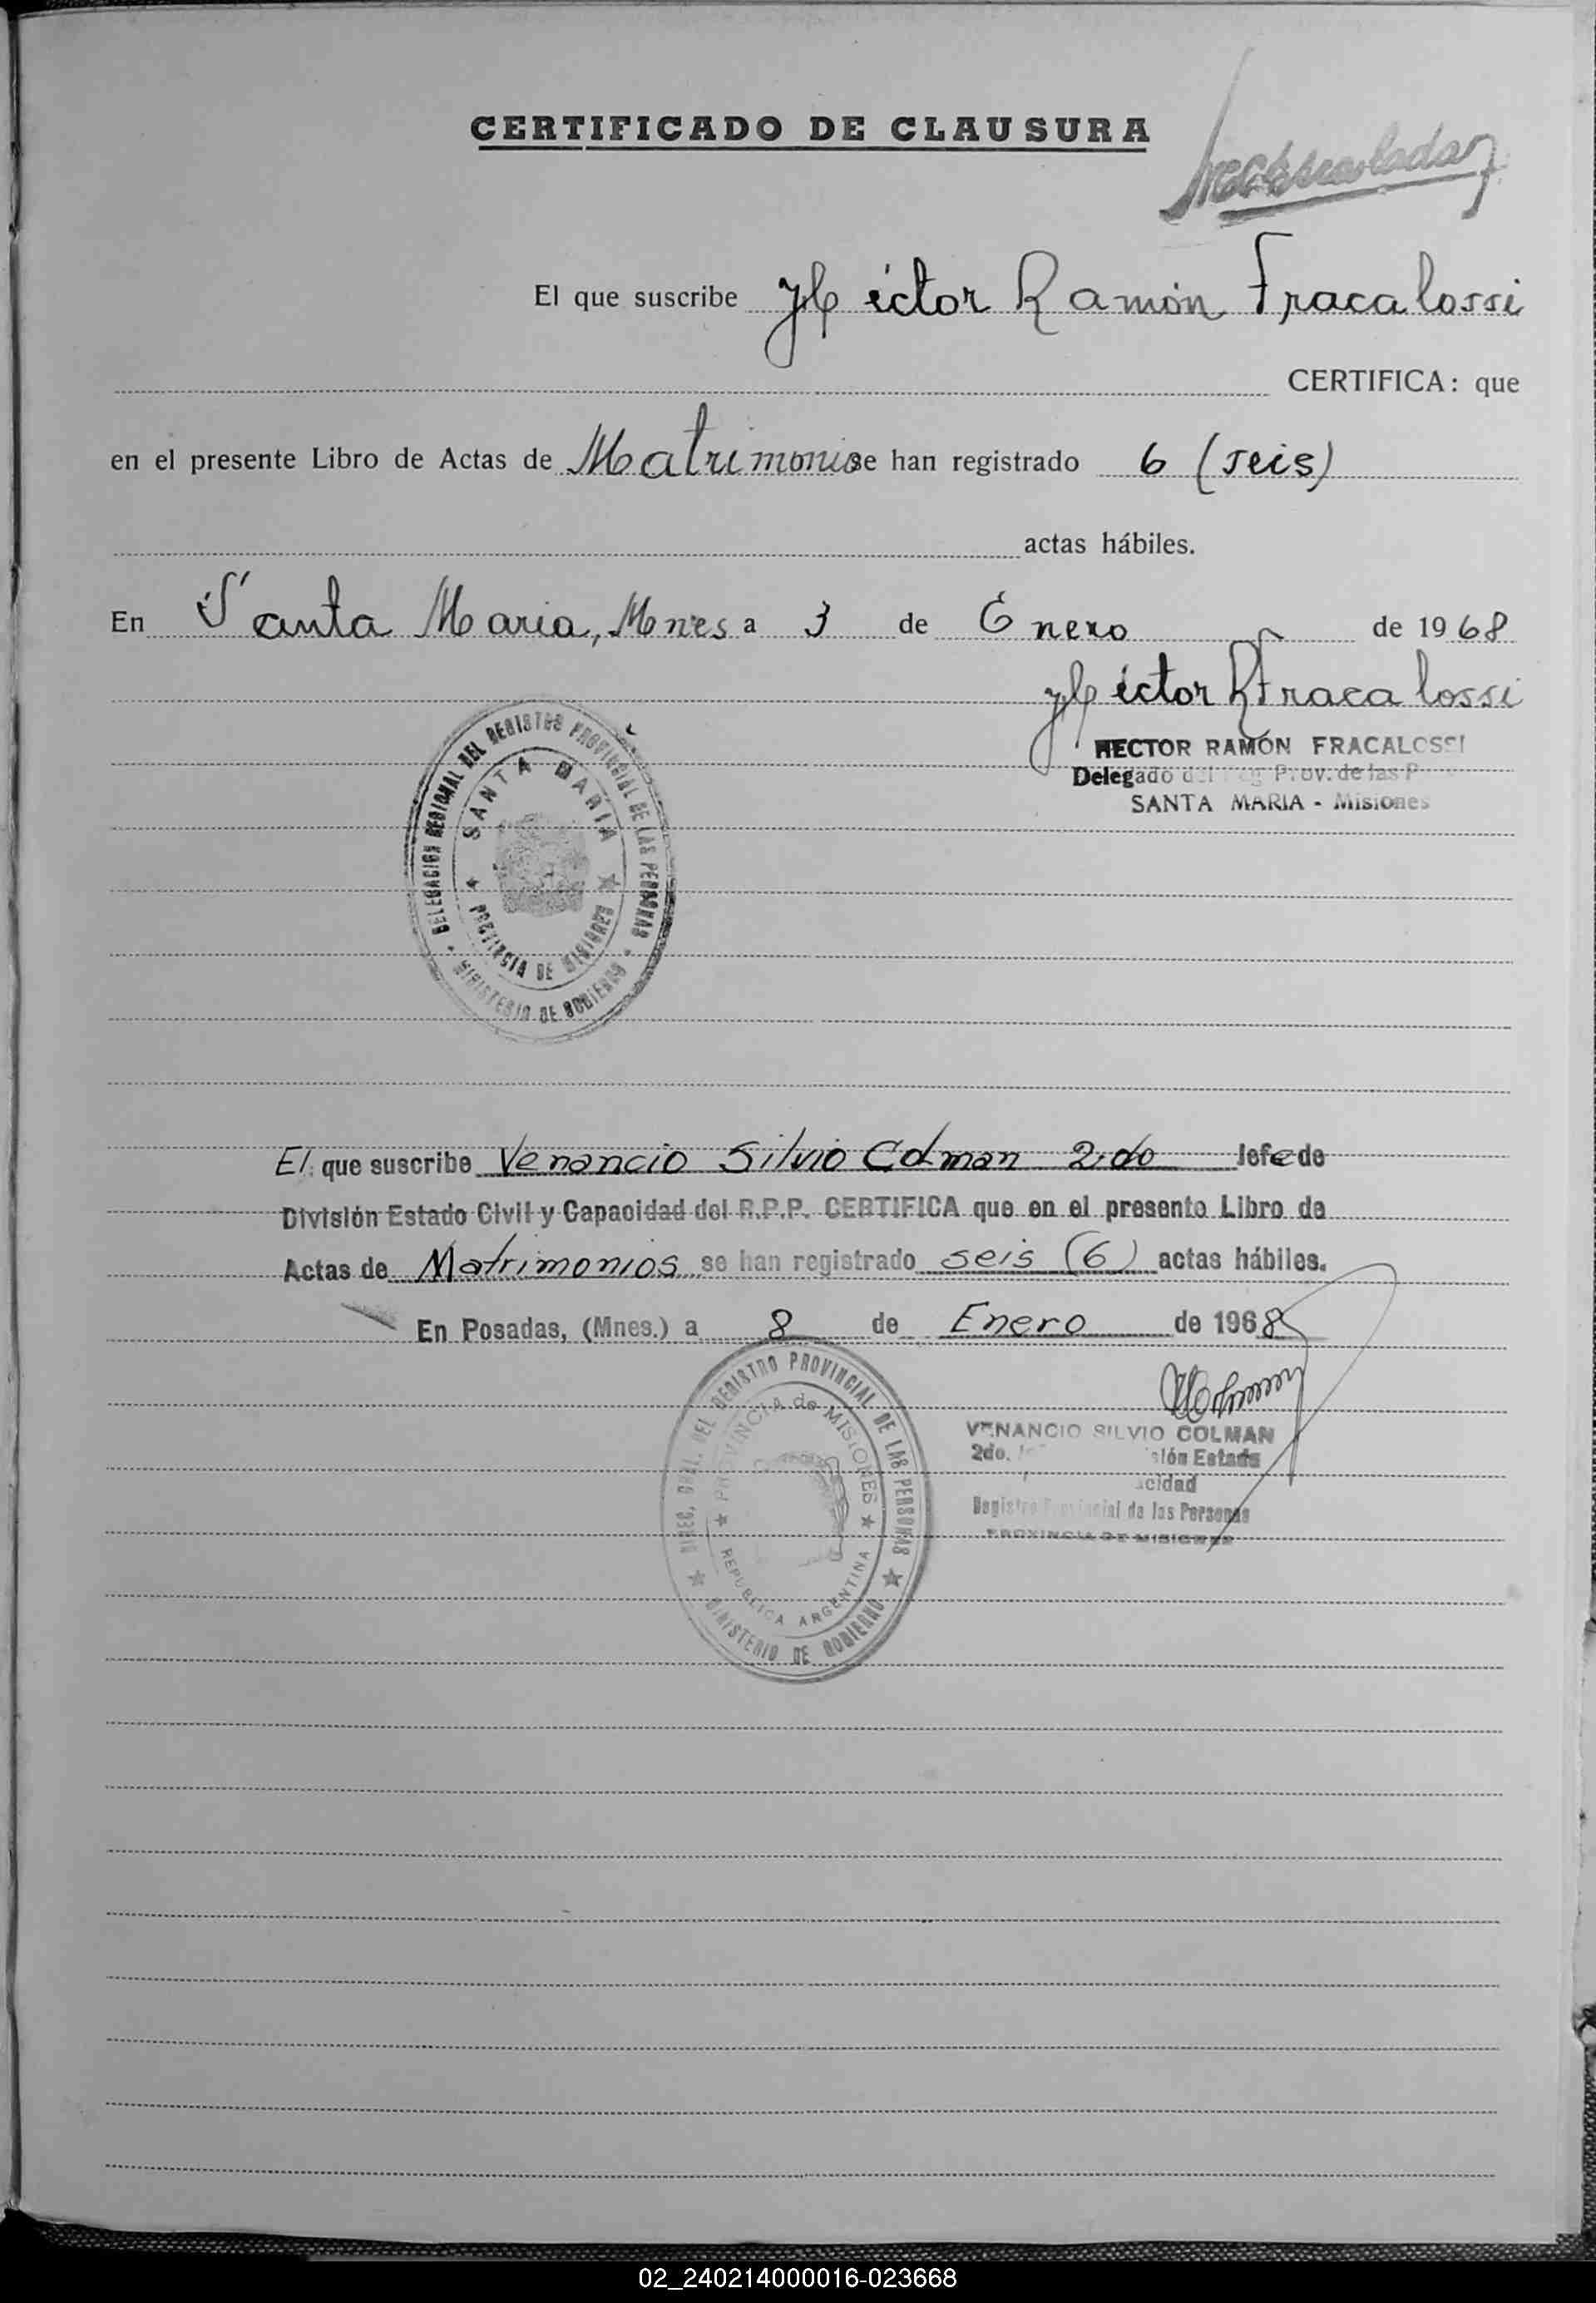 CERTIFICADO DE CLAUSURA
El que suscribe Héctor Ramón Fracalossi
CERTIFICA: que
en el presente Libro de Actas de Matrimonio se han registrado 6 (seis)
actas hábiles.
En Santa Maria, Mnes a 3 de Enero de 1968
Héctor R Fracalossi
HECTOR RAMÓN FRACALOSSI
Delegado del Prov. de las
SANTA MARIA - Misiones
DELEGACION REGIONAL DEL REGISTRO PROVINCIAL DE LAS PERSONAS
SANTA MARIA
PROVINCIA DE MISIONES
MINISTERIO DE GOBIERNO
El que suscribe Venancio Silvio Colman 2do Jefe de
División Estado Civil y Capacidad del R.P.P. CERTIFICA que en el presente Libro de
Actas de Matrimonios se han registrado seis (6) actas hábiles.
En Posadas, (Mnes.) a 8 de Enero de 1968
VENANCIO SILVIO COLMAN
2do. Estado
Registro Provincial de las Personas
PROVINCIA DE MISIONES
DIREC. GRAL. DEL REGISTRO PROVINCIAL DE LAS PERSONAS
PROVINCIA de MISIONES
REPUBLICA ARGENTINA
MINISTERIO DE GOBIERNO
02_240214000016-023668